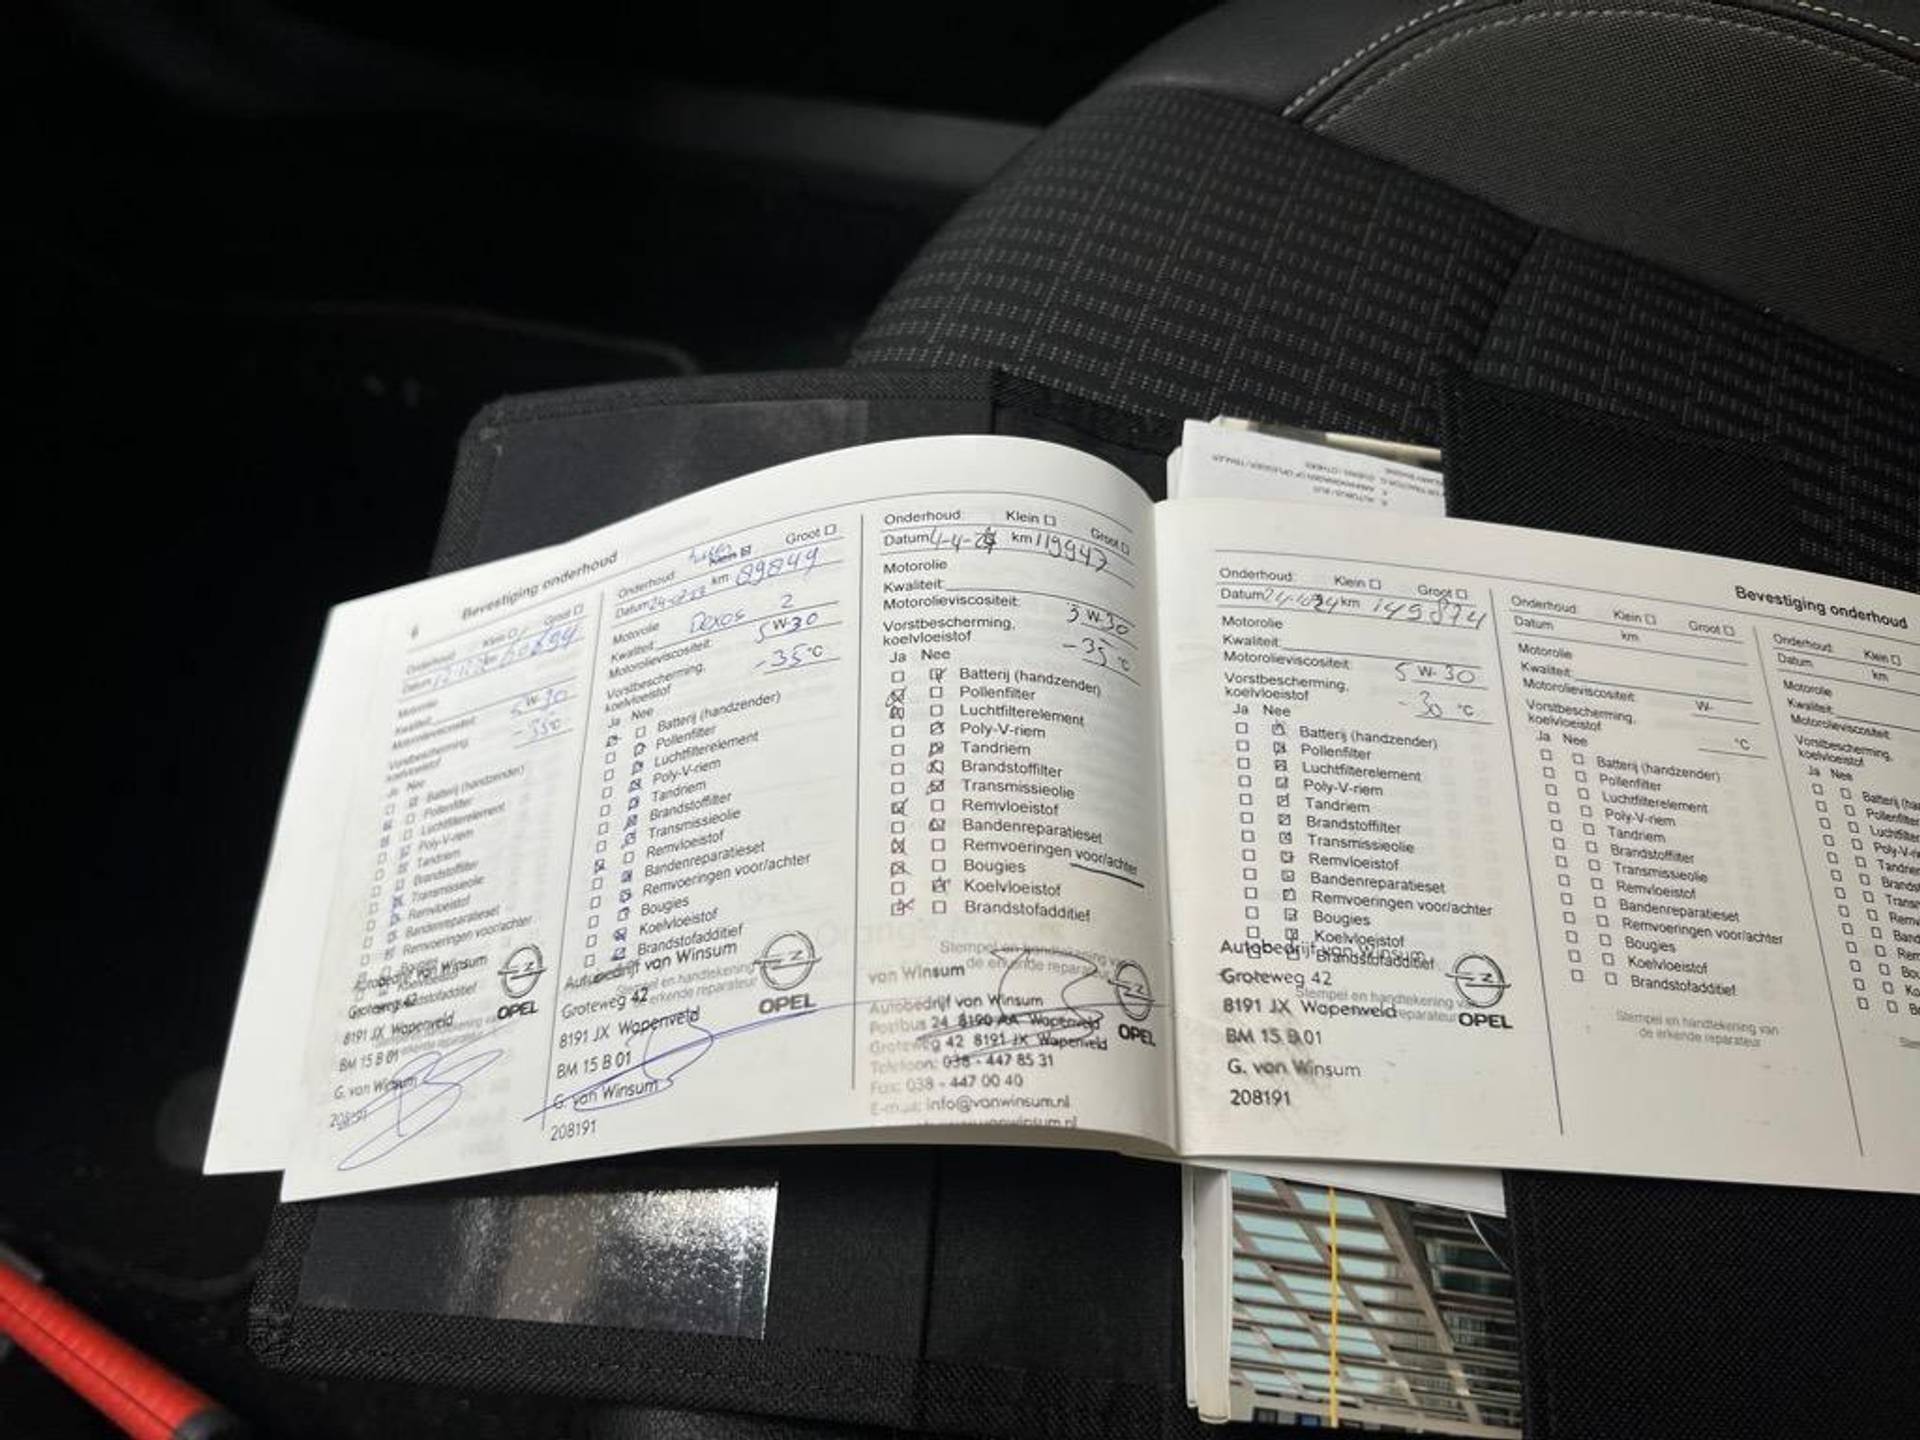 6
Bevestiging onderhoud
Onderhoud Klein Groot
Datum km
Motorolie
Kwaliteit:
Motorolieviscositeit: 5 W-30
Vorstbescherming,
koelvloeistof
Ja Nee
Batterij (handzender)
Pollenfilter
Luchtfilterelement
Poly-V-riem
Tandriem
Brandstoffilter
Transmissieolie
Remvloeistof
Bandenreparatieset
Remvoeringen voor/achter
Autobedrijf van Winsum
Groteweg 42
8191 JX Wapenveld
BM 15 B 01
G. van Winsum
208191
OPEL
Onderhoud Klein Groot
Datum km 89849
Motorolie
Kwaliteit: Dexos 2
Motorolieviscositeit: 5 W-30
Vorstbescherming,
koelvloeistof -35 °C
Ja Nee
Batterij (handzender)
Pollenfilter
Luchtfilterelement
Poly-V-riem
Tandriem
Brandstoffilter
Transmissieolie
Remvloeistof
Bandenreparatieset
Remvoeringen voor/achter
Bougies
Koelvloeistof
Brandstofadditief
Stempel en handtekening
erkende reparateur
Autobedrijf van Winsum
Groteweg 42
8191 JX Wapenveld
BM 15 B 01
G. van Winsum
208191
OPEL
Onderhoud: Klein Groot
Datum 4-4- km 119947
Motorolie
Kwaliteit:
Motorolieviscositeit: 5 W-30
Vorstbescherming,
koelvloeistof -35 °C
Ja Nee
Batterij (handzender)
Pollenfilter
Luchtfilterelement
Poly-V-riem
Tandriem
Brandstoffilter
Transmissieolie
Remvloeistof
Bandenreparatieset
Remvoeringen voor/achter
Bougies
Koelvloeistof
Brandstofadditief
Stempel en handtekening van
de erkende reparateur
van Winsum
Autobedrijf van Winsum
Postbus 24 8190 AA Wapenveld
Groteweg 42 8191 JX Wapenveld
Telefoon: 038 - 447 85 31
Fax: 038 - 447 00 40
E-mail: info@vanwinsum.nl
OPEL
Bevestiging onderhoud
Onderhoud: Klein Groot
Datum km 149874
Motorolie
Kwaliteit:
Motorolieviscositeit: 5 W-30
Vorstbescherming,
koelvloeistof -30 °C
Ja Nee
Batterij (handzender)
Pollenfilter
Luchtfilterelement
Poly-V-riem
Tandriem
Brandstoffilter
Transmissieolie
Remvloeistof
Bandenreparatieset
Remvoeringen voor/achter
Bougies
Koelvloeistof
Brandstofadditief
Stempel en handtekening van
reparateur
Autobedrijf van Winsum
Groteweg 42
8191 JX Wapenveld
BM 15 B 01
G. van Winsum
208191
OPEL
Onderhoud: Klein Groot
Datum km
Motorolie
Kwaliteit:
Motorolieviscositeit: W-
Vorstbescherming,
koelvloeistof °C
Ja Nee
Batterij (handzender)
Pollenfilter
Luchtfilterelement
Poly-V-riem
Tandriem
Brandstoffilter
Transmissieolie
Remvloeistof
Bandenreparatieset
Remvoeringen voor/achter
Bougies
Koelvloeistof
Brandstofadditief
Stempel en handtekening van
de erkende reparateur
Onderhoud: Klein
Datum km
Motorolie
Kwaliteit:
Motorolieviscositeit:
Vorstbescherming,
koelvloeistof
Ja Nee